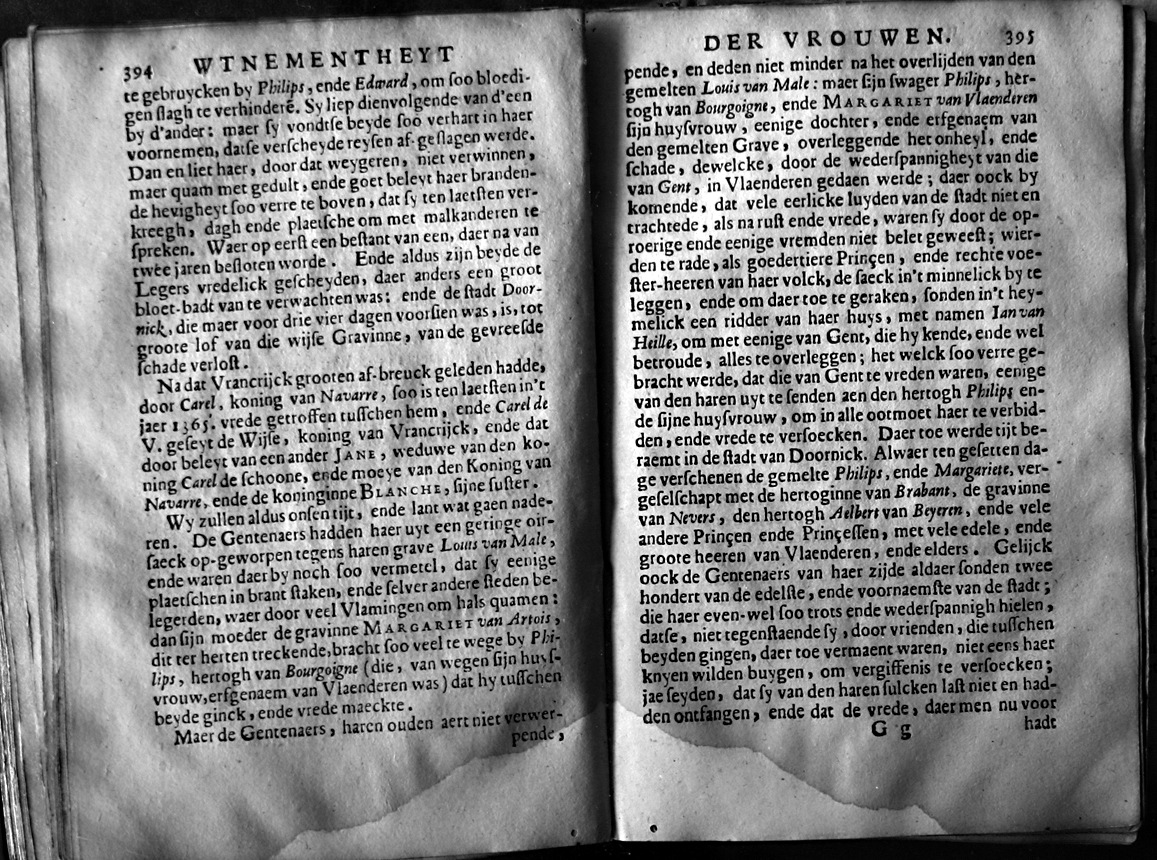 394 WTNEMENTHEYT
te gebruycken by Philips, ende Edward, om ſoo bloedi-
gen ſlagh te verhinderē. Sy liep dienvolgende van d'een
by d'ander: maer ſy vondtſe beyde ſoo verhart in haer
voornemen, datſe verſcheyde reyſen af-geſlagen werde.
Dan en liet haer, door dat weygeren, niet verwinnen,
maer quam met gedult, ende goet beleyt haer branden-
de hevigheyt ſoo verre te boven, dat ſy ten laetſten ver-
kreegh, dagh ende plaetſche om met malkanderen te
ſpreken. Waer op eerſt een beſtant van een, daer na van
twee jaren beſloten worde. Ende aldus zijn beyde de
Legers vredelick geſcheyden, daer anders een groot
bloet-badt van te verwachten was: ende de ſtadt Door-
nick, die maer voor drie vier dagen voorſien was, is, tot
groote lof van die wijſe Gravinne, van de gevreeſde
ſchade verloſt.
Na dat Vrancrijck grooten af-breuck geleden hadde,
door Carel, koning van Navarre, ſoo is ten laetſten in't
jaer 1365. vrede getroffen tuſſchen hem, ende Carel de
V. geſeyt de Wijſe, koning van Vrancrijck, ende dat
door beleyt van een ander JANE, weduwe van den ko-
ning Carel de ſchoone, ende moeye van den Koning van
Navarre, ende de koninginne BLANCHE, ſijne ſuſter.
Wy zullen aldus onſen tijt, ende lant wat gaen nade-
ren. De Gentenaers hadden haer uyt een geringe oir-
ſaeck op-geworpen tegens haren grave Louis van Male,
ende waren daer by noch ſoo vermetel, dat ſy eenige
plaetſchen in brant ſtaken, ende ſelver andere ſteden be-
legerden, waer door veel Vlamingen om hals quamen:
dan ſijn moeder de gravinne MARGARIET van Artois,
dit ter herten treckende, bracht ſoo veel te wege by Phi-
lips, hertogh van Bourgoigne (die, van wegen ſijn huyſ-
vrouw, erfgenaem van Vlaenderen was) dat hy tuſſchen
beyde ginck, ende vrede maeckte.
Maer de Gentenaers, haren ouden aert niet verwer-
pende,
DER VROUWEN. 395
pende, en deden niet minder na het overlijden van den
gemelten Louis van Male: maer ſijn ſwager Philips, her-
togh van Bourgoigne, ende MARGARIET van Vlaenderen
ſijn huyſvrouw, eenige dochter, ende erfgenaem van
den gemelten Grave, overleggende het onheyl, ende
ſchade, dewelcke, door de wederſpannigheyt van die
van Gent, in Vlaenderen gedaen werde; daer oock by
komende, dat vele eerlicke luyden van de ſtadt niet en
trachtede, als na ruſt ende vrede, waren ſy door de op-
roerige ende eenige vremden niet belet geweeſt; wier-
den te rade, als goedertiere Prinçen, ende rechte voe-
ſter-heeren van haer volck, de ſaeck in't minnelick by te
leggen, ende om daer toe te geraken, ſonden in't hey-
melick een ridder van haer huys, met namen Ian van
Heille, om met eenige van Gent, die hy kende, ende wel
betroude, alles te overleggen; het welck ſoo verre ge-
bracht werde, dat die van Gent te vreden waren, eenige
van den haren uyt te ſenden aen den hertogh Philips en-
de ſijne huyſvrouw, om in alle ootmoet haer te verbid-
den, ende vrede te verſoecken. Daer toe werde tijt be-
raemt in de ſtadt van Doornick. Alwaer ten geſetten da-
ge verſchenen de gemelte Philips, ende Margariete, ver-
geſelſchapt met de hertoginne van Brabant, de gravinne
van Nevers, den hertogh Aelbert van Beyeren, ende vele
andere Prinçen ende Prinçeſſen, met vele edele, ende
groote heeren van Vlaenderen, ende elders. Gelijck
oock de Gentenaers van haer zijde aldaer ſonden twee
hondert van de edelſte, ende voornaemſte van de ſtadt;
die haer even-wel ſoo trots ende wederſpannigh hielen,
datſe, niet tegenſtaende ſy, door vrienden, die tuſſchen
beyden gingen, daer toe vermaent waren, niet eens haer
knyen wilden buygen, om vergiffenis te verſoecken;
jae ſeyden, dat ſy van den haren ſulcken laſt niet en had-
den ontfangen, ende dat de vrede, daer men nu voor
G g hadt